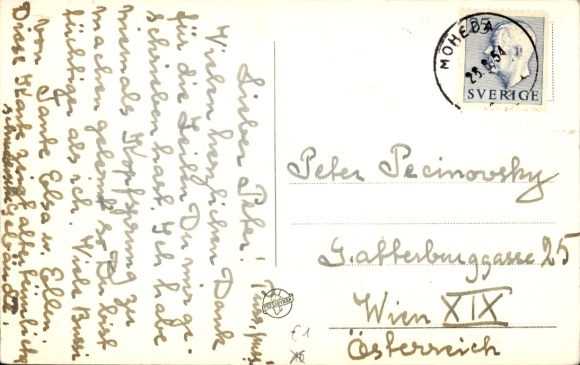 Lieber Peter!
Vielen herzlichen Dank
für die Zeilen Du mir ge-
schrieben hast. Ich habe
niemals Kopfsprung zu
machen gelernt so Du bist
tüchtiger als ich. Viele Bussi
von Tante Elsa u. Ellen.
Diese Karte zeigt
MOHEDA
28.8.54
25
SVERIGE
Peter Pecinovsky
Gatterburggasse 25
Wien XIX
Österreich
€1